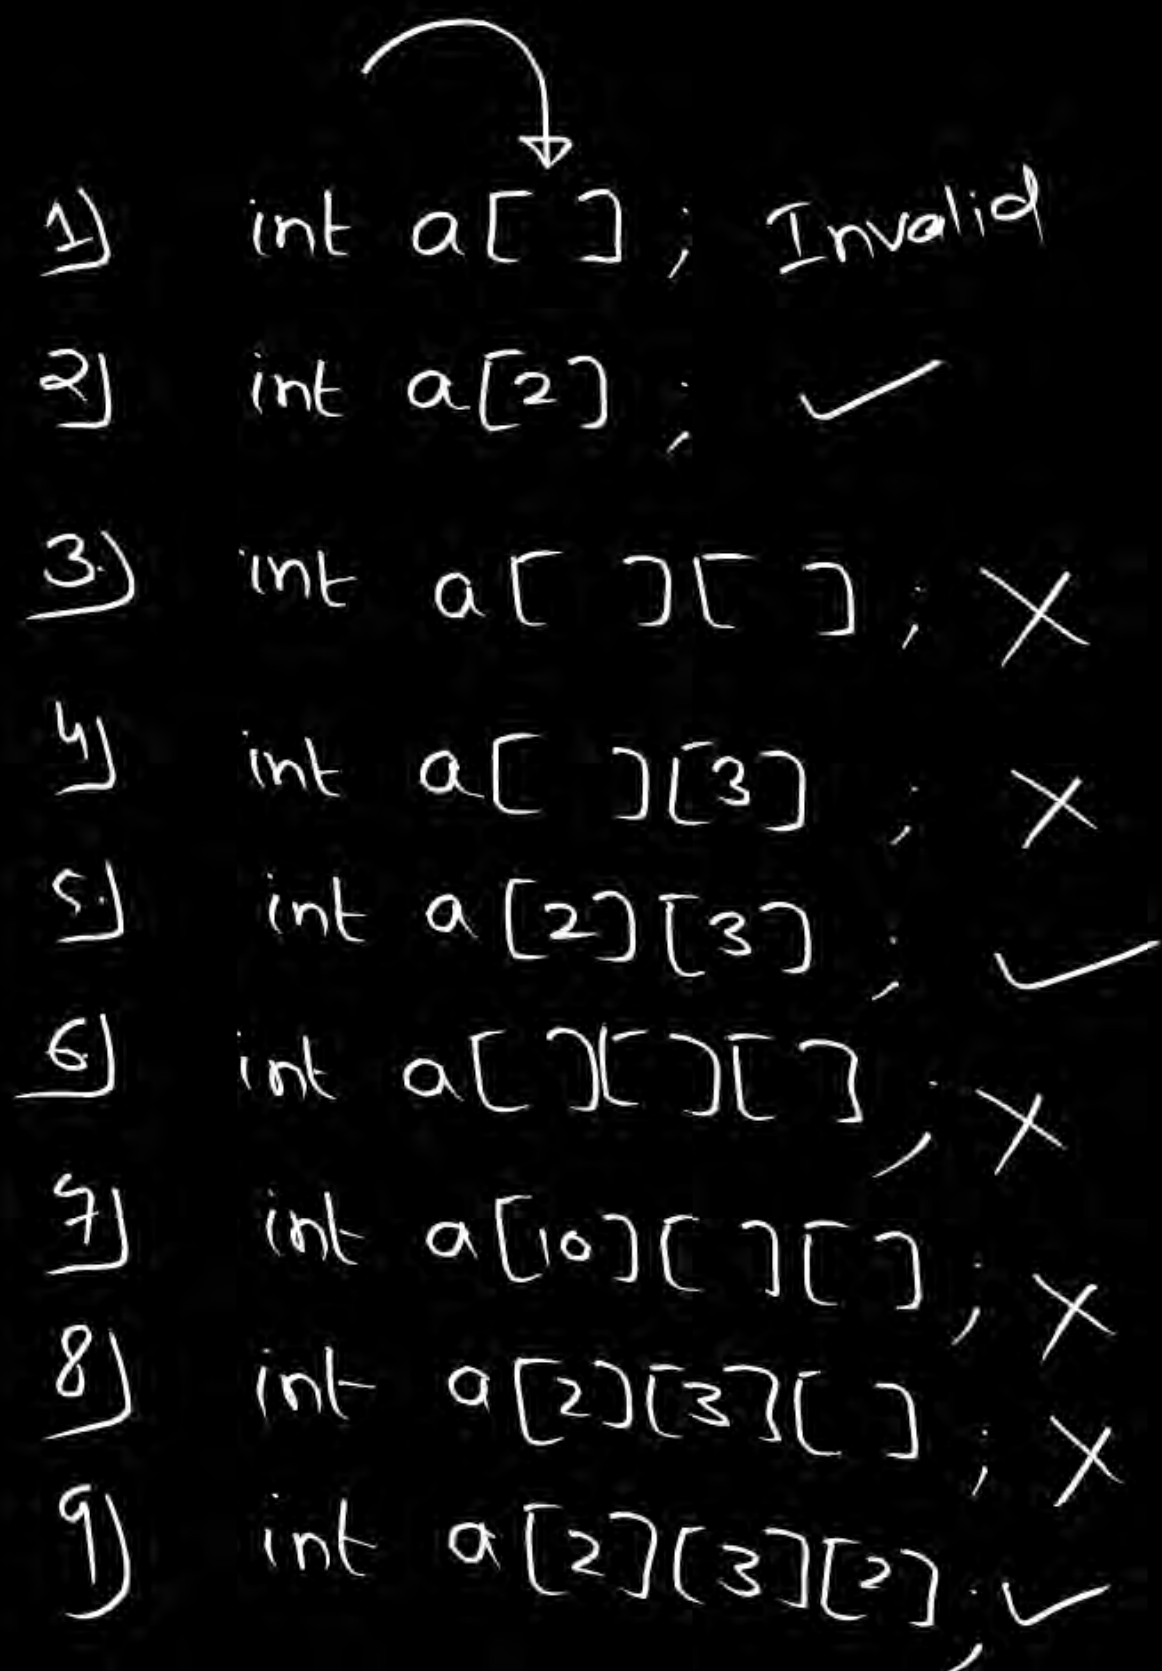 1) int a[ ] ; Invalid
2) int a[2] ; ✓
3.) int a[ ][ ] ; X
4) int a[ ][3] ; X
5.) int a[2][3] ; ✓
6) int a[ ][ ][ ] ; X
7) int a[10][ ][ ] ; X
8) int a[2][3][ ] ; X
9) int a[2][3][2] ; ✓